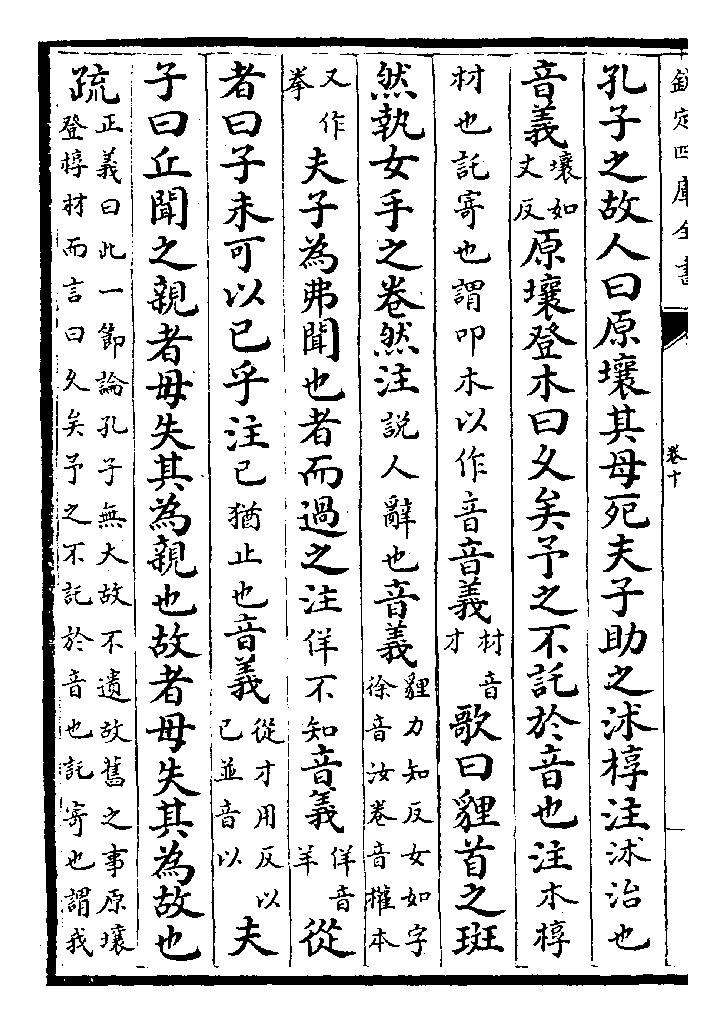 欽定四庫全書
卷十
孔子之故人曰原壤其母死夫子助之沐椁注沐治也
音義壤如丈反原壤登木曰久矣予之不託於音也注木椁
材也託寄也謂叩木以作音音義材音才歌曰貍首之斑
然執女手之卷然注說人辭也音義貍力知反女如字徐音汝卷音權本
又作拳夫子為弗聞也者而過之注佯不知音義佯音羊從
者曰子未可以已乎注已猶止也音義從才用反以已並音以夫
子曰丘聞之親者毋失其為親也故者毋失其為故也
疏正義曰此一節論孔子無大故不遺故舊之事原壤
登椁材而言曰久矣予之不託於音也託寄也謂我